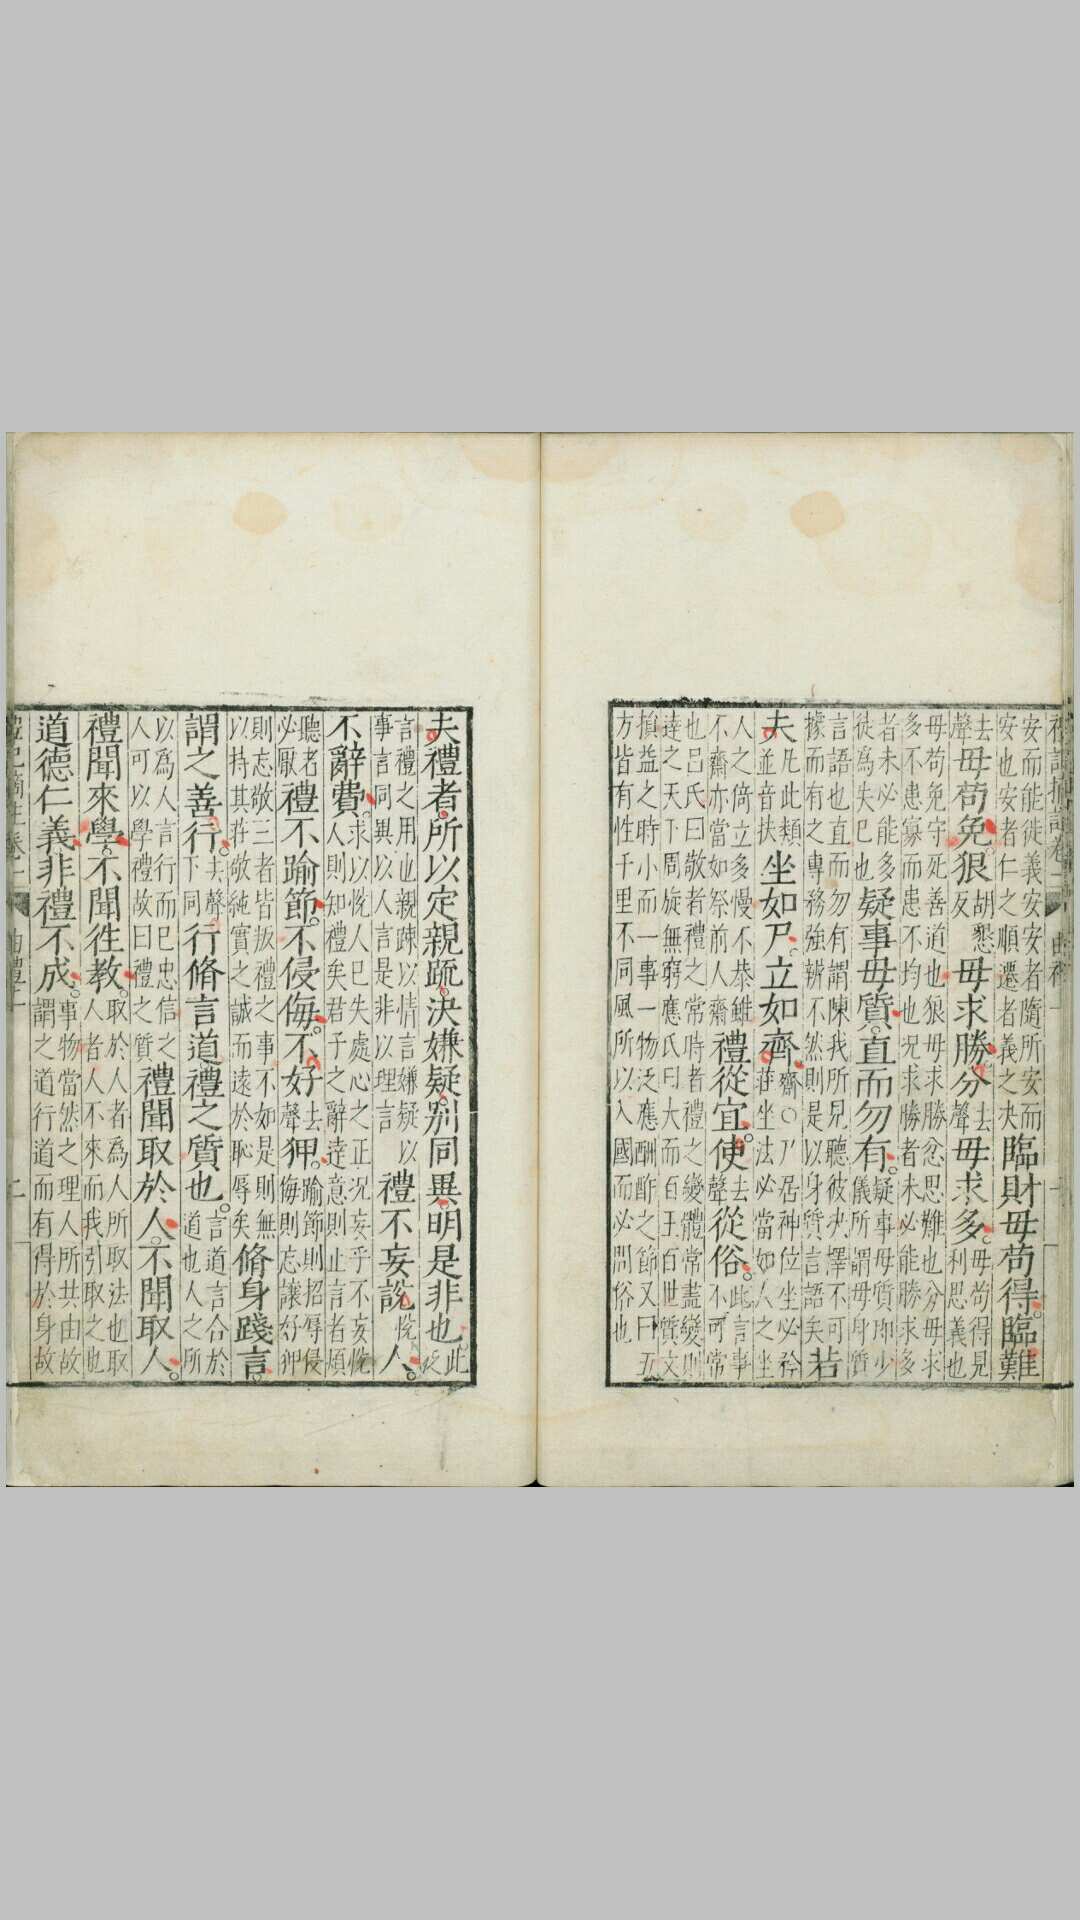 安而能徙義安安者隨所安而
安也安者仁之順遷者義之决
臨財毋苟得臨難
去
聲
毋苟免狠
胡懇
反
毋求勝分
去
聲
毋求多
毋苟得見
利思義也
毋苟免守死善道也狠毋求勝忿思難也分毋求
多不患寡而患不均也况求勝者未必能勝求多
者未必能多
徒爲失巳也
疑事毋質直而勿有
疑事毋質即少
儀所謂毋身質
言語也直而勿有謂陳我所見聽彼决擇不可
據而有之專務強辨不然則是以身質言語矣
若
夫
凡此類
並音扶
坐如尸立如齊
齋○尸居神位坐必矜
莊坐法必當如人之坐
人之倚立多慢不恭雖
不齋亦當如祭前人齋
禮從宜使
去
聲
從俗
此言事
不可常
也呂氏曰敬者禮之常時者禮之變體常盡變則
達之天下周旋無窮應氏曰大而百王百世質文
損益之時小而一事一物泛應酬酢之節又曰五
方皆有性千里不同風所以入國而必問俗也
夫禮者所以定親疏決嫌疑别同異明是非也
此
汎
言禮之用也親踈以情言嫌疑以
事言同異以人言是非以理言
禮不妄說
悦
人
不辭費
求以悅人巳失處心之正况妄乎不妄悅
人則知禮矣君子之辭達意則止言者煩
聽者
必厭
禮不踰節不侵侮不好
去
聲
狎
踰節則招辱侵
侮則忘讓好狎
則志敬三者皆叛禮之事不如是則無
以持其莊敬純實之誠而遠於恥辱矣
脩身踐言
謂之善行
去聲
下同
行脩言道禮之質也
言道言合於
道也人之所
以爲人言行而巳忠信之
人可以學禮故曰禮之質
禮聞取於人不聞取人
禮聞來學不聞徃教
取於人者爲人所取法也取
人者人不來而我引取之也
道德仁義非禮不成
事物當然之理人所共由故
謂之道行道而有得於身故